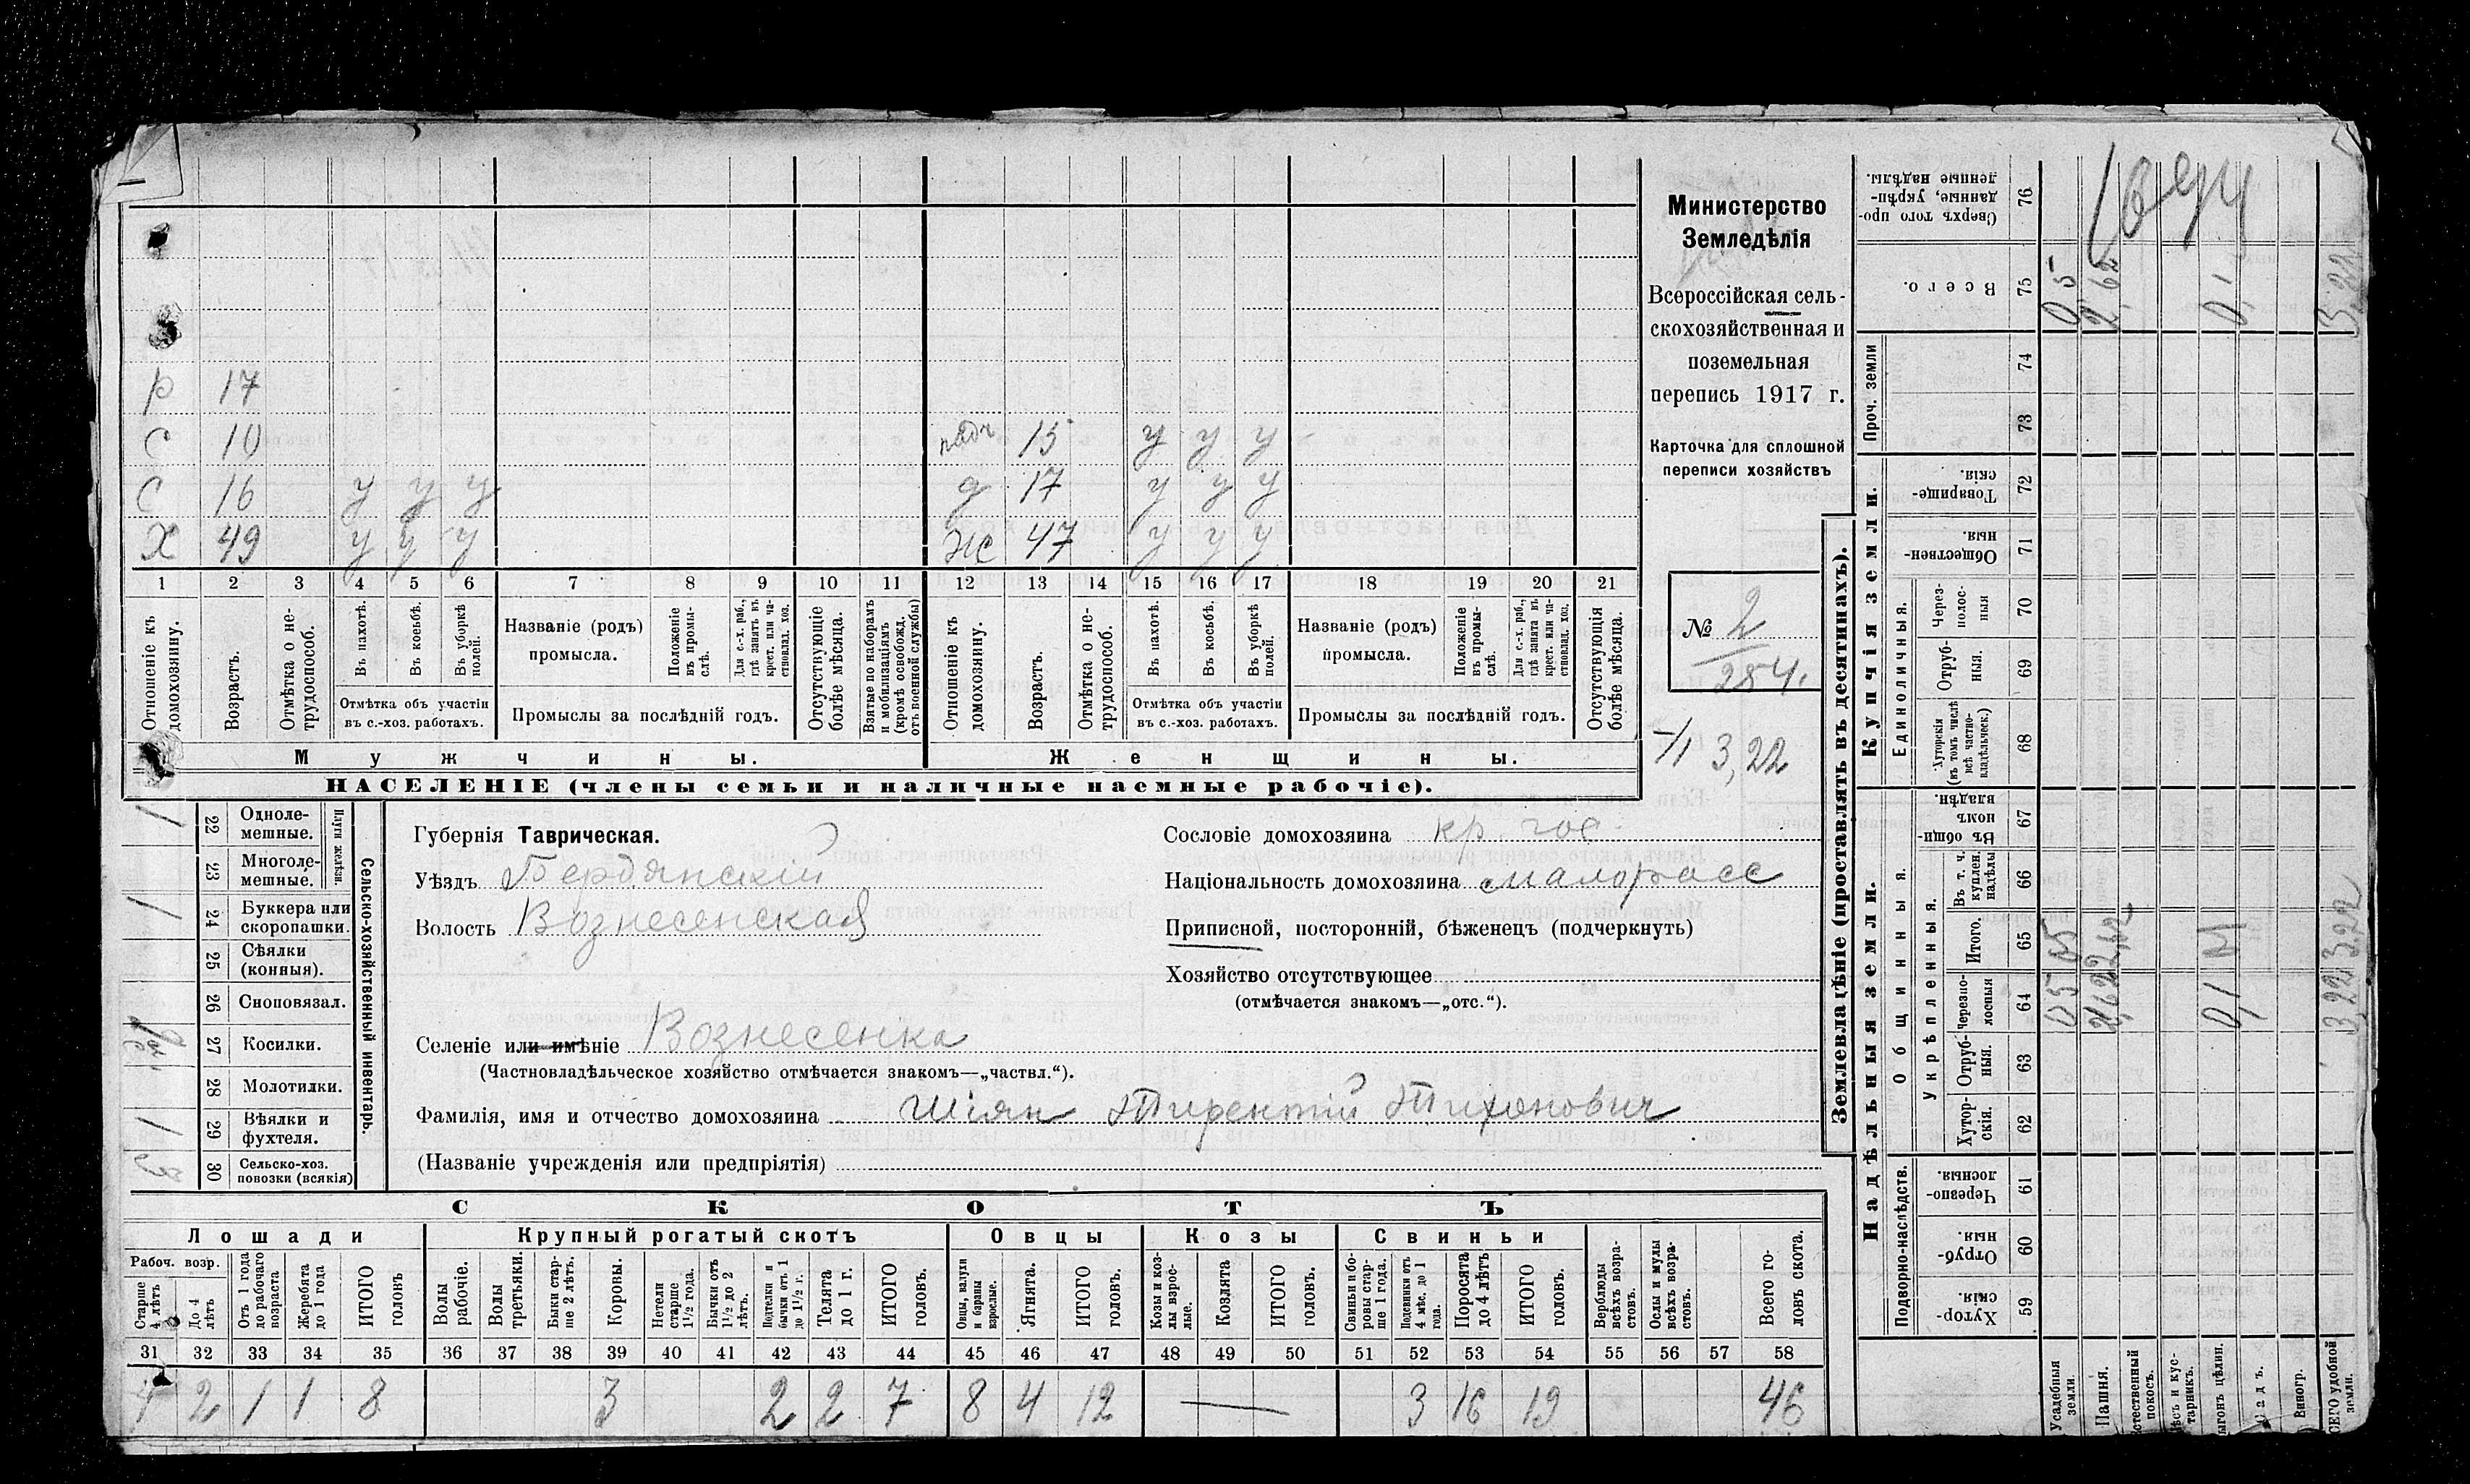 Министерство
Земледѣлія
Всероссійская сель-
скохозяйственная и
поземельная
перепись 1917 г.
Карточка для сплошной
переписи хозяйствъ
№ 2
284.
3,22
р 17
с 10 15 у у у
с 16 у у у д 17 у у у
х 49 у у у ж 47 у у у
1 2 3 4 5 6 7 8 9 10 11 12 13 14 15 16 17 18 19 20 21
Отношеніе къ домохозяину.
Возрастъ.
Отмѣтка о не-трудоспособ.
Въ пахотѣ.
Въ косьбѣ.
Въ уборкѣ полей.
Отмѣтка объ участіи
въ с.-хоз. работахъ.
Названіе (родъ)
промысла.
Положеніе въ промы-слѣ.
Для с.-х. раб., гдѣ занятъ въ крест. или ча-стновлад. хоз.
Промыслы за послѣдній годъ.
Отсутствующіе болѣе мѣсяца.
Взятые по наборамъ и мобилизаціямъ (кромѣ освобожд. отъ военной службы)
Отношеніе къ домохозяину.
Возрастъ.
Отмѣтка о не-трудоспособ.
Въ пахотѣ.
Въ косьбѣ.
Въ уборкѣ полей.
Отмѣтка объ участіи
въ с.-хоз. работахъ.
Названіе (родъ)
промысла.
Положеніе въ промы-слѣ.
Для с.-х. раб., гдѣ занята въ крест. или ча-стновлад. хоз.
Промыслы за послѣдній годъ.
Отсутствующія болѣе мѣсяца.
Мужчины. Женщины.
НАСЕЛЕНІЕ (члены семьи и наличные наемные рабочіе).
Сельско-хозяйственный инвентарь.
Плуги желѣзн.
1 22 Одноле-мешные.
23 Многоле-мешные.
1 24 Буккера или скоропашки.
25 Сѣялки (конныя).
26 Сноповязал.
27 Косилки.
28 Молотилки.
1 29 Вѣялки и фухтеля.
3 30 Сельско-хоз. повозки (всякія)
Губернія Таврическая.
Уѣздъ Бердянскій
Волость Вознесенская
Селеніе или имѣніе Вознесенка
(Частновладѣльческое хозяйство отмѣчается знакомъ—„частвл.“).
Фамилія, имя и отчество домохозяина Шіян Тирентій Тихонович
(Названіе учрежденія или предпріятія)
Сословіе домохозяина кр. гос.
Національность домохозяина малорасс
Приписной, посторонній, бѣженецъ (подчеркнуть)
Хозяйство отсутствующее
(отмѣчается знакомъ—„отс.“).
СКОТЪ
Лошади Крупный рогатый скотъ Овцы Козы Свиньи
Рабоч. возр.
Старше 4 лѣтъ
До 4 лѣтъ
Отъ 1 года до рабочаго возраста
Жеребята до 1 года
ИТОГО головъ
Волы рабочіе.
Волы третьяки.
Быки стар-ше 2 лѣтъ.
Коровы.
Нетели старше 1½ года.
Бычки отъ 1½ до 2 лѣтъ.
Подтелки и бычки отъ 1 до 1½ г.
Телята до 1 г.
ИТОГО головъ.
Овцы, валухи и бараны взрослые.
Ягнята.
ИТОГО головъ.
Козы и коз-лы взрос-лые.
Козлята
ИТОГО головъ.
Свиньи и бо-ровы стар-ше 1 года.
Подсвинки отъ 4 мѣс. до 1 года.
Поросята до 4 лѣтъ
ИТОГО головъ.
Верблюды всѣхъ возра-стовъ.
Ослы и мулы всѣхъ возра-стовъ.
Всего го-ловъ скота.
31 32 33 34 35 36 37 38 39 40 41 42 43 44 45 46 47 48 49 50 51 52 53 54 55 56 57 58
4 2 1 1 8 3 2 2 7 8 4 12 — 3 16 19 46
Землевладѣніе (проставлять въ десятинахъ).
Надѣльныя земли. Купчія земли. Проч. земли
Подворно-наслѣдств.
Общинныя.
Укрѣпленныя.
Единоличныя.
59 Хутор-скія.
60 Отруб-ныя.
61 Черезпо-лосныя.
62 Хутор-скія.
63 Отруб-ныя.
64 Черезпо-лосныя
65 Итого.
66 Въ т. ч. куплен. надѣлы
67 Въ общи-номъ владѣн.
68 Хуторскія (въ томъ числѣ всѣ частно-владѣльческ.)
69 Отруб-ныя.
70 Через-полос-ныя
71 Обществен-ныя.
72 Товарище-скія.
73
74
75 Всего.
76 Сверхъ того про-данные, укрѣп-ленные надѣлы.
Усадебныя земли. 05 05 0 5
Пашня. 2,62 2,62 2,62
Естественный покосъ.
Лѣсъ и кус-тарникъ.
Выгонъ цѣлин. 0,1 0,1
Садъ.
Виногр.
ВСЕГО удобной земли. 3,22 3,22 3,22